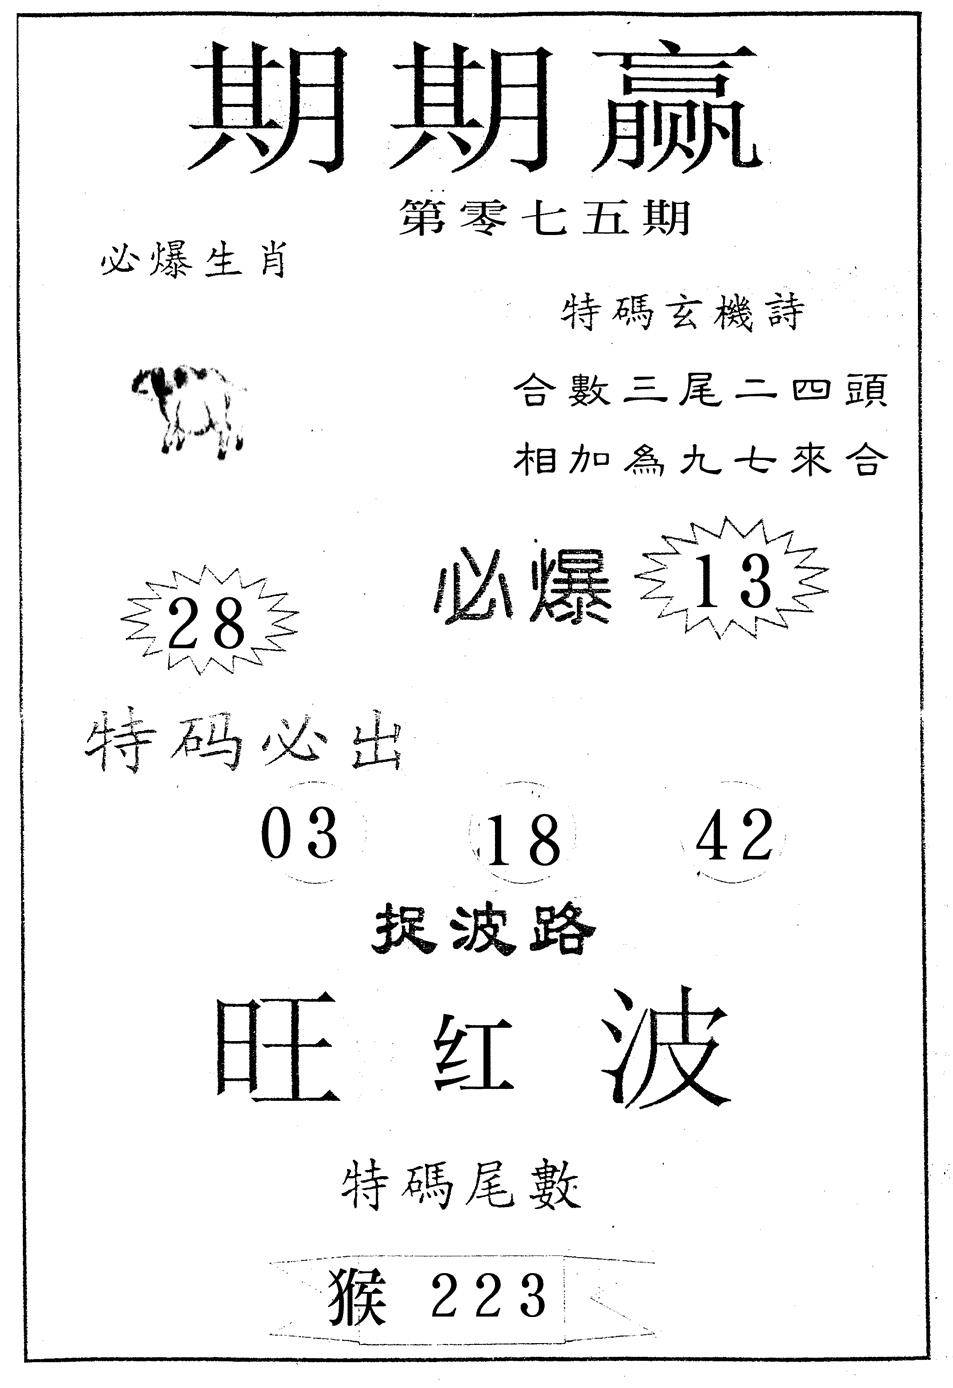 期期赢
第零七五期
必爆生肖
特碼玄機詩
合數三尾二四頭
相加為九七來合
必爆 13
28
特码必出
03 18 42
捉波路
旺红波
特碼尾數
猴 223